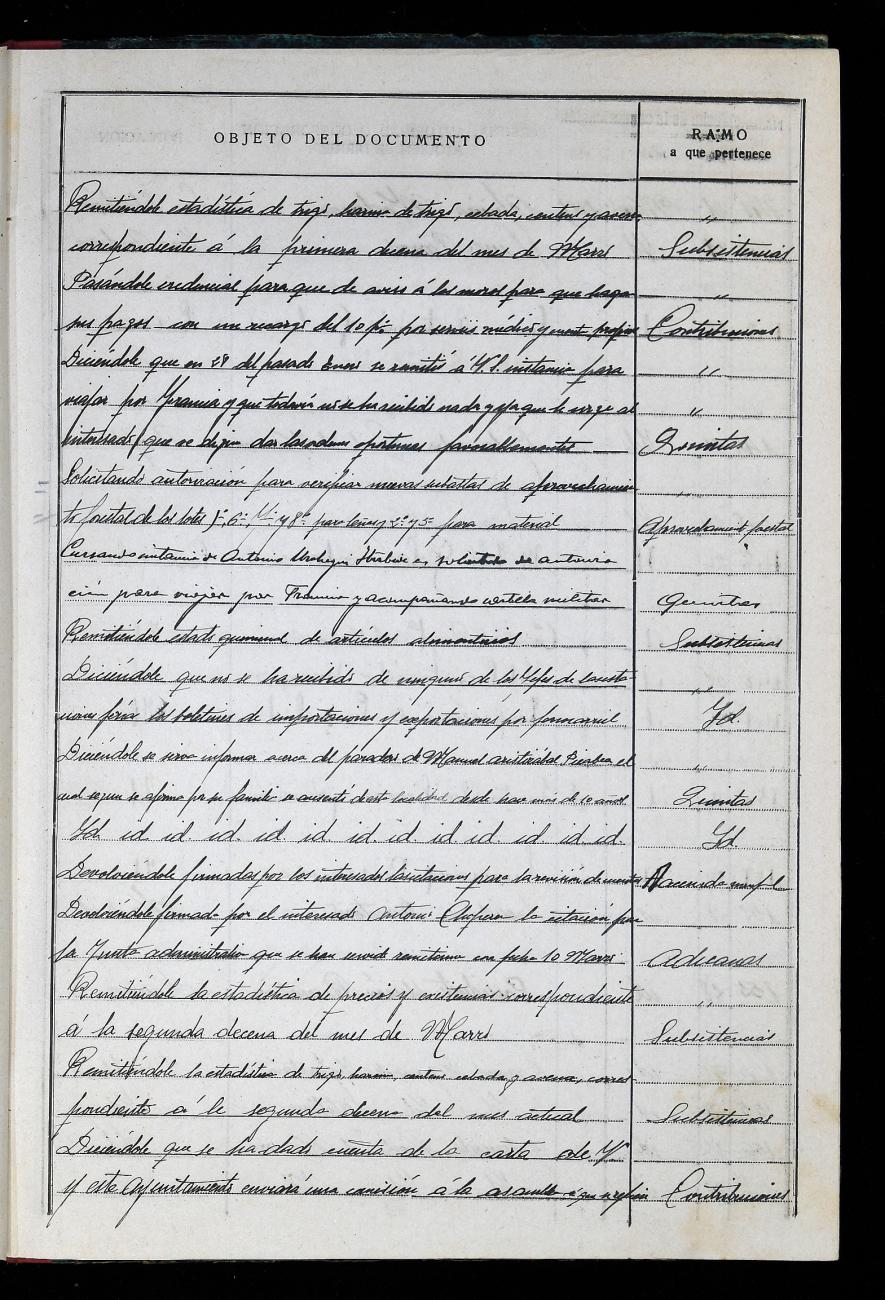 OBJETO DEL DOCUMENTO
RAMO
a que pertenece
Remitiéndole estadística de trigo, harina de trigo, cebada, centeno y avena "
correspondiente á la primera decena del mes de Marzo Subsistencias
Pasándole credencial para que de aviso á los moros para que haga "
sus pagos con un recargo del 10 p% por médico y Contribuciones
Diciéndole que en 28 del pasado Enero se remitió á V.S. instancia para "
viajar por Francia y que todavía no se ha recibido nada y ya que le urge al "
interesado que se digne dar las ordenes oportunas favorablemente Quintas
Solicitando autorización para verificar nuevas subastas de aprovechamien "
to forestal de los lotes 1º, 6º y 8º para leñas y 2º y 5º para material Aprovechamiento forestal
Cursando instancia de Antonio Iturbide en solicitud de autoriza
ción para viajar por Francia y acompañando cartela militar Quintas
Remitiéndole estado quincenal de artículos alimenticios Subsistencias
Diciéndole que no se ha recibido de ninguno de los Jefes de las esta "
ciones los boletines de importaciones y exportaciones por ferrocarril Id.
Diciéndole se sirva informar acerca del paradero de Manuel el "
cual segun se afirma por su familia se ausentó de esta localidad desde hace más de 10 años Quintas
Id. id. id. id. id. id. id. id. id. id. id. id. Id.
Devolviéndole firmadas por los interesados las citaciones para la revisión de Hacienda
Devolviéndole firmada por el interesado Antonio la citación para
la Junta administrativa que se han con fecha 10 Marzo Aduanas
Remitiéndole la estadística de precios y existencias correspondiente "
á la segunda decena del mes de Marzo Subsistencias
Remitiéndole la estadística de trigo, harina, centeno cebada y avena, corres
pondiente á la segunda decena del mes actual Subsistencias
Diciéndole que se ha dado cuenta de la carta de V
y este Ayuntamiento enviará una comisión á la asamblea á que se refiere Contribuciones